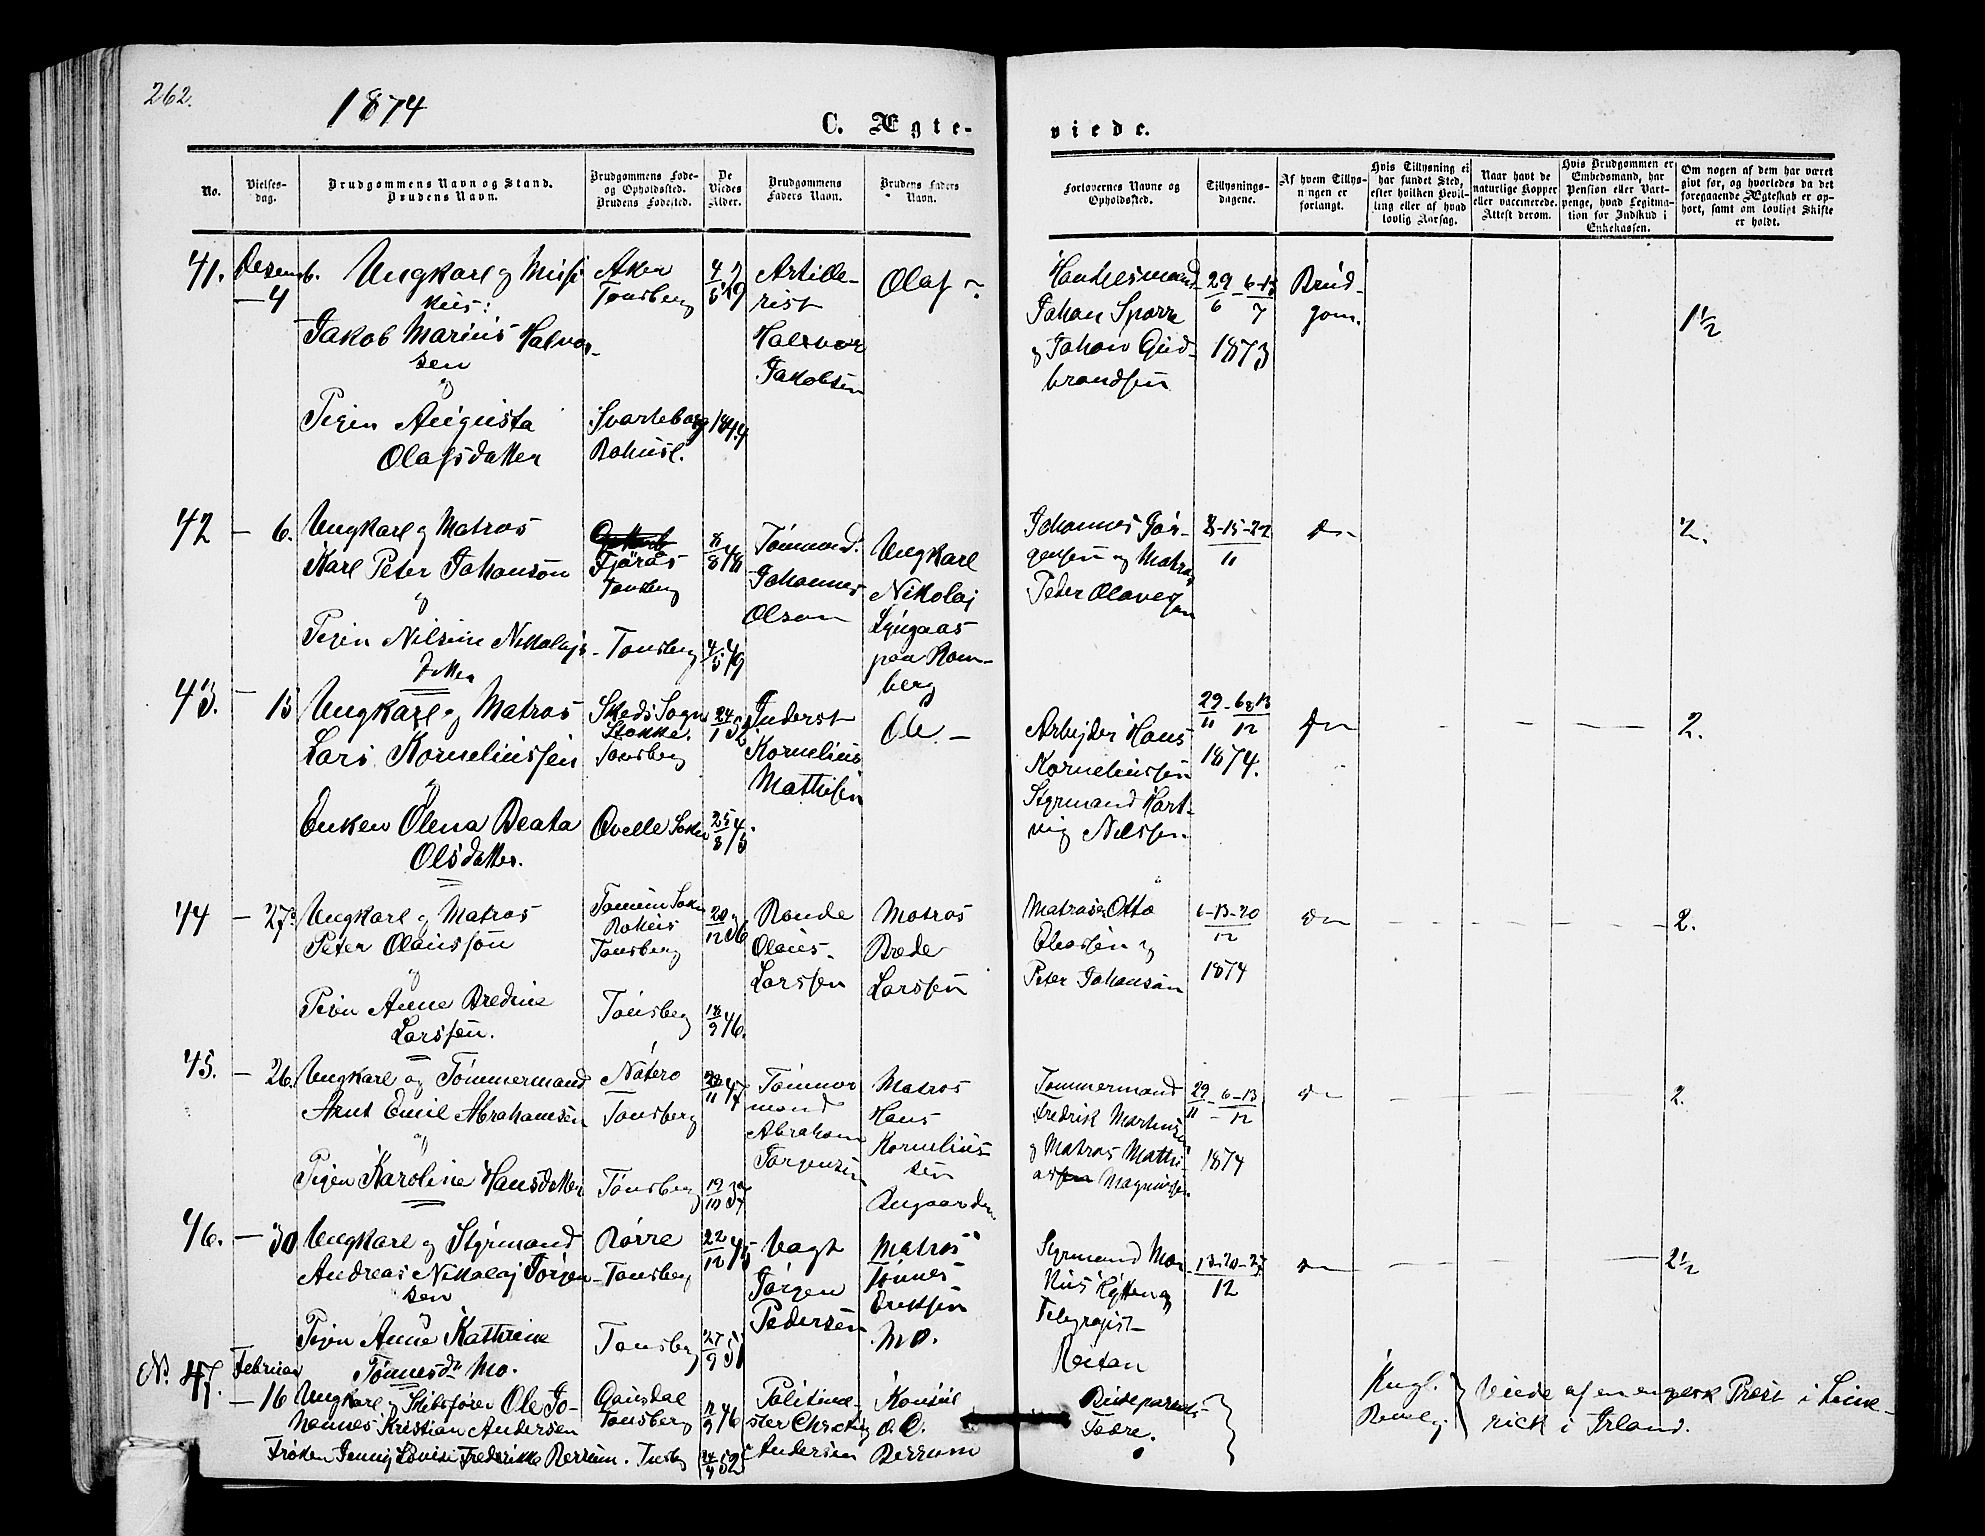 262.
1874
C. Ægte-
viede.
No.
Vielses-
dag.
Brudgommens Navn og Stand.
Brudens Navn.
Brudgommens Føde-
og Opholdssted.
Brudens Fødested.
De
Viedes
Alder.
Brudgommens
Faders Navn.
Brudens Faders
Navn.
Forlovernes Navne og
Opholdssted.
Tillysnings-
dagene.
Af hvem Tillys-
ningen er
forlangt.
Hvis Tillysning ei
har fundet Sted,
efter hvilken Bevil-
ling eller af hvad
lovlig Aarsag.
Naar havt de
naturlige Kopper
eller vaccinerede.
Attest derom.
Hvis Brudgommen er
Embedsmand, har
Pension eller Vart-
penge, hvad Legitima-
tion for Indskud i
Enkekassen.
Om nogen af dem har været
gift før, og hvorledes da det
foregaaende Ægteskab er op-
hørt, samt om lovligt Skifte
er holdt.
41. Desemb.
- 4
Ungkarl og Musi
kus:
Jakob Marius Halvor-
sen
og
Pigen Augusta
Olafsdatter
Aker
Tønsberg
Svarteborg
Bohusl.
1844
Artille-
rist
Halvor
Jakobsen
Olaf
Johan Sparre
og Johan Gud-
brandsen
29/6 - 6-13/7
1873
Brud-
gom.
1½
42 - 6.
Ungkarl og Matros
Karl Peter Johanson
og
Pigen Nilsine Nikolajs-
datter
Fjärås
Tønsberg
Tønsberg
4/5 49
Tømmermd.
Johannes
Olson
Ungkarl
Nikolaj
Lyngaas
paa Ram-
berg
Johannes Jør-
gensen og Matros
Peder Olavesen
8-15-22/11
2.
43. - 15
Ungkarl og Matros
Lars Korneliussen
og
Enken Olena Beata
Olsdatter.
Skeds Sogn
Stokke.
Tønsberg
24/1 52
25/8 45
Inderst
Kornelius
Mathisen
Ole. -
Arbejder Hans
Korneliussen
Styrmand Hart-
vig Nilssen.
29/11 - 6 & 13/12
1874.
2.
44 - 27
Ungkarl og Matros
Peter Olausson
og
Pigen Anne Bredine
Larssen.
Bohus
Tønsberg
Tønsberg
18/9 46.
Bonde
Olaus
Larssen
Matros
Brede
Larssen
Matroser Otto
Peter Johanson
6-13-20/12
1874
2.
45. - 26.
Ungkarl og Tømmermand
Arnt Emil Abrahamsen
og
Pigen Karoline Hansdatter
Nøterø
Tønsberg
Tønsberg
Tømmer
mand
Abraham
Jørgensen
Matros
Hans
Kornelius-
sen
Tømmermand
Fredrik Martinsen
og Matros Mathi
as Magnussen
29/11 - 6-13/12
1874
2.
46. - 30
Ungkarl og Styrmand
Andreas Nikolaj Jørgen-
sen
og
Pigen Anne Kathrine
Tønnesdr Mo.
Borre
Tønsberg
Tønsberg
22/12 45
27/9 51
Vagt
Jørgen
Pedersen
Matros
Tønnes
Eriksen
Mo.
Styrmand Mar-
kus Hytten og
Telegrafist
Reitan
13-20-27/12
2½
No. 47. Februar
- 16
Ungkarl og Skibsfører Ole Jo-
hannes Kristian Andersen
Frøken Jenny Lovise Frederikke Berrum.
Gausdal
Tønsberg
Tønsbg
Politime-
ster Christian
Andersen
Konsul
O. O.
Berrum
Brudeparrets
Fædre.
Kngl.
Bevilg
Viede af en engelsk Præst i Lime-
rick i Irland.